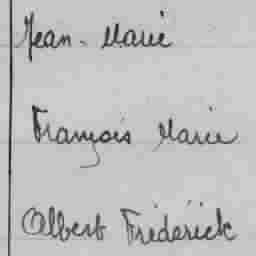 Jean-Marie
François Marie
Albert Frédérick